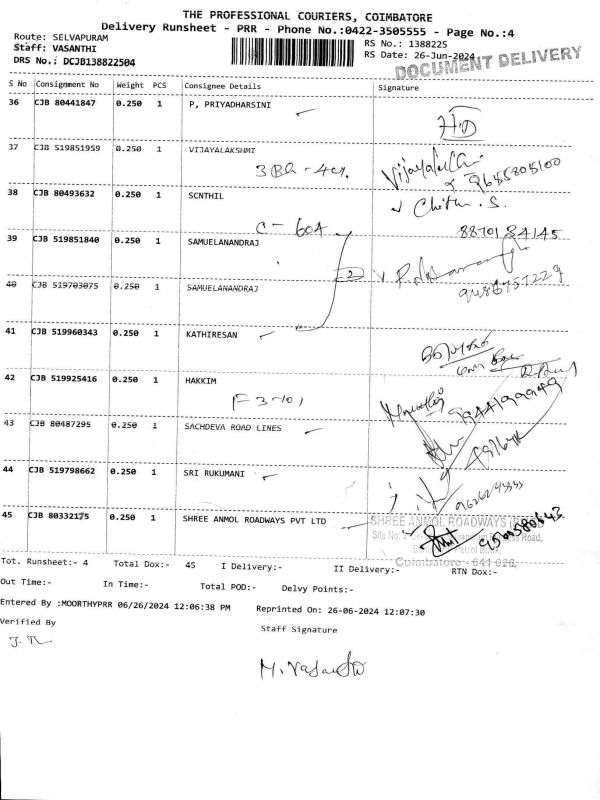 THE PROFESSIONAL COURIERS, COIMBATORE
Delivery Runsheet - PRR - Phone No.:0422-3505555 - Page No.:4
Route: SELVAPURAM
Staff: VASANTHI
DRS No.: DCJB138822504
RS No.: 1388225
RS Date: 26-Jun-2024
DOCUMENT DELIVERY
S No Consignment No Weight PCS Consignee Details Signature
36 CJB 80441847 0.250 1 P, PRIYADHARSINI
37 CJB 519851959 0.250 1 VIJAYALAKSHMI
9655805100
38 CJB 80493632 0.250 1 SCNTHIL
C - 604
8870184145
39 CJB 519851840 0.250 1 SAMUELANANDRAJ
2
40 CJB 519703075 0.250 1 SAMUELANANDRAJ
9486757229
41 CJB 519960343 0.250 1 KATHIRESAN
42 CJB 519925416 0.250 1 HAKKIM
F 3-101
43 CJB 80487295 0.250 1 SACHDEVA ROAD LINES
44 CJB 519798662 0.250 1 SRI RUKUMANI
45 CJB 80332175 0.250 1 SHREE ANMOL ROADWAYS PVT LTD
SHREE ANMOL ROADWAYS
Road,
Coimbatore - 641 026.
Tot. Runsheet:- 4 Total Dox:- 45 I Delivery:- II Delivery:- RTN Dox:-
Out Time:- In Time:- Total POD:- Delvy Points:-
Entered By :MOORTHYPRR 06/26/2024 12:06:38 PM Reprinted On: 26-06-2024 12:07:30
Verified By
Staff Signature
M. Vasanthi